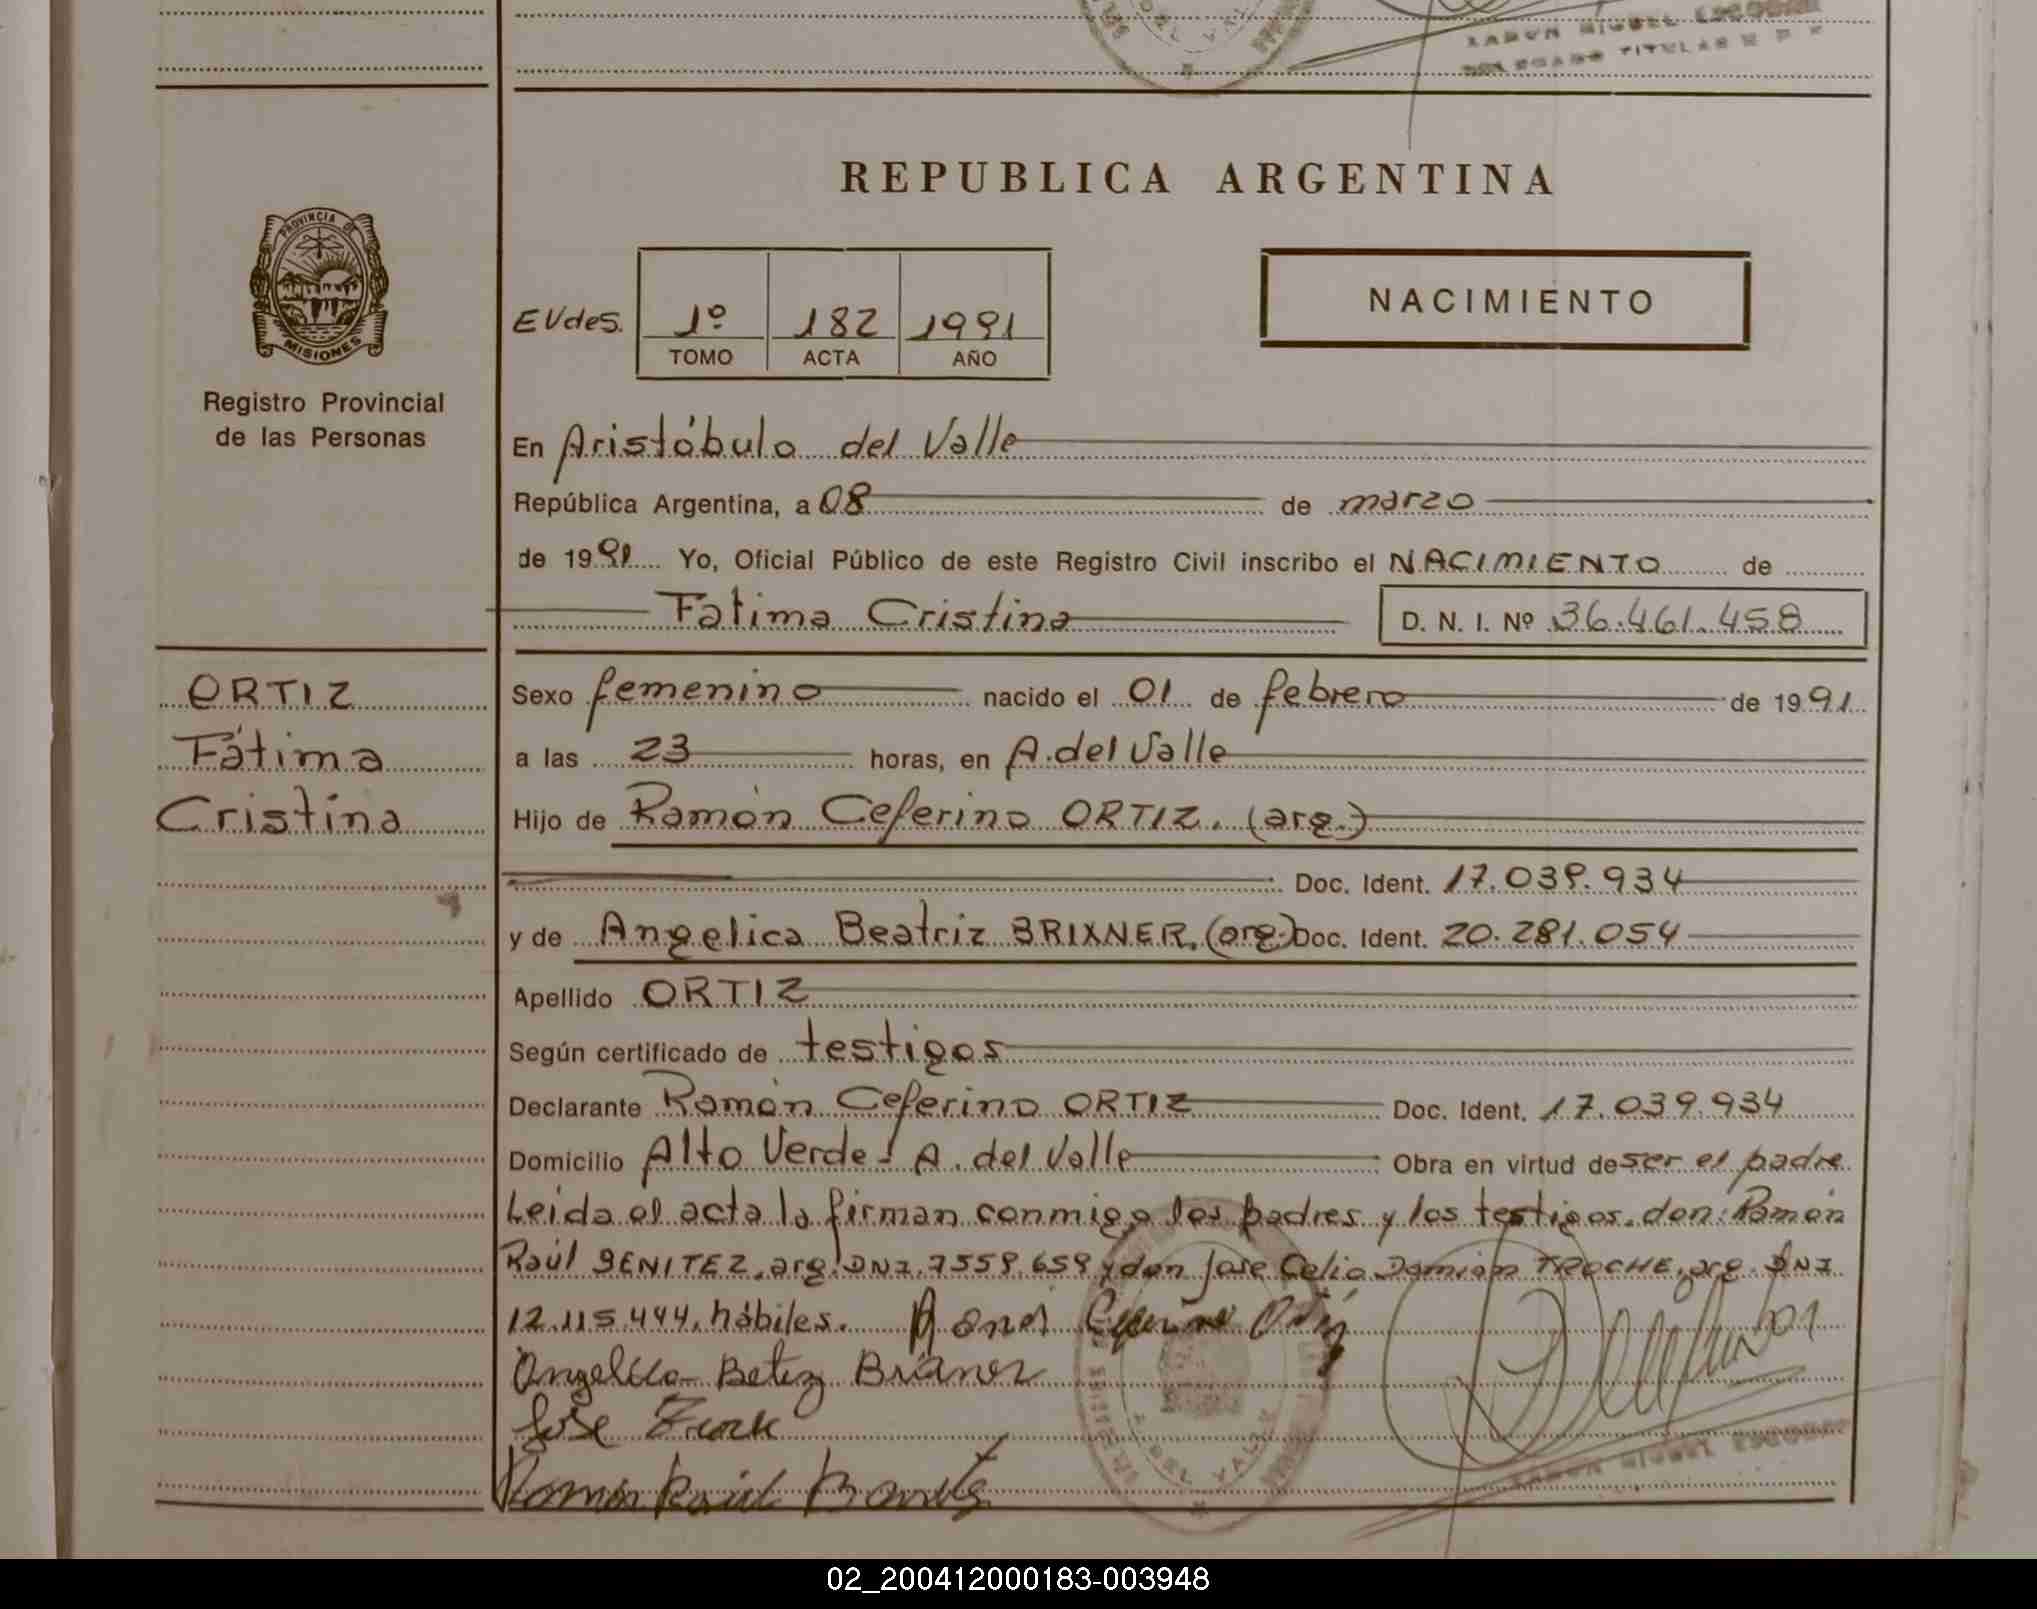 REPUBLICA ARGENTINA
PROVINCIA DE
MISIONES
Registro Provincial
de las Personas
EVdes. 1º 182 1991
TOMO ACTA AÑO
NACIMIENTO
En Aristóbulo del Valle
República Argentina, a 08 de marzo
de 1991 Yo, Oficial Público de este Registro Civil inscribo el NACIMIENTO de
Fatima Cristina D. N. I. Nº 36.461.458
ORTIZ
Fátima
Cristina
Sexo femenino nacido el 01 de febrero de 1991
a las 23 horas, en A. del Valle
Hijo de Ramón Ceferino ORTIZ. (arg.)
Doc. Ident. 17.039.934
y de Angelica Beatriz BRIXNER. (arg.) Doc. Ident. 20.281.054
Apellido ORTIZ
Según certificado de testigos
Declarante Ramón Ceferino ORTIZ Doc. Ident. 17.039.934
Domicilio Alto Verde - A. del Valle Obra en virtud de ser el padre
Leida el acta la firman conmigo los padres y los testigos. don: Ramón
Raúl BENITEZ, arg. DNI. 7559.659 y don Jose Celio Damian TROCHE, arg. DNI
12.115.444, hábiles.
Ceferino Ortiz
Jose
Ramon Raúl
DEL VALLE
MIGUEL ESCOBAR
02_200412000183-003948